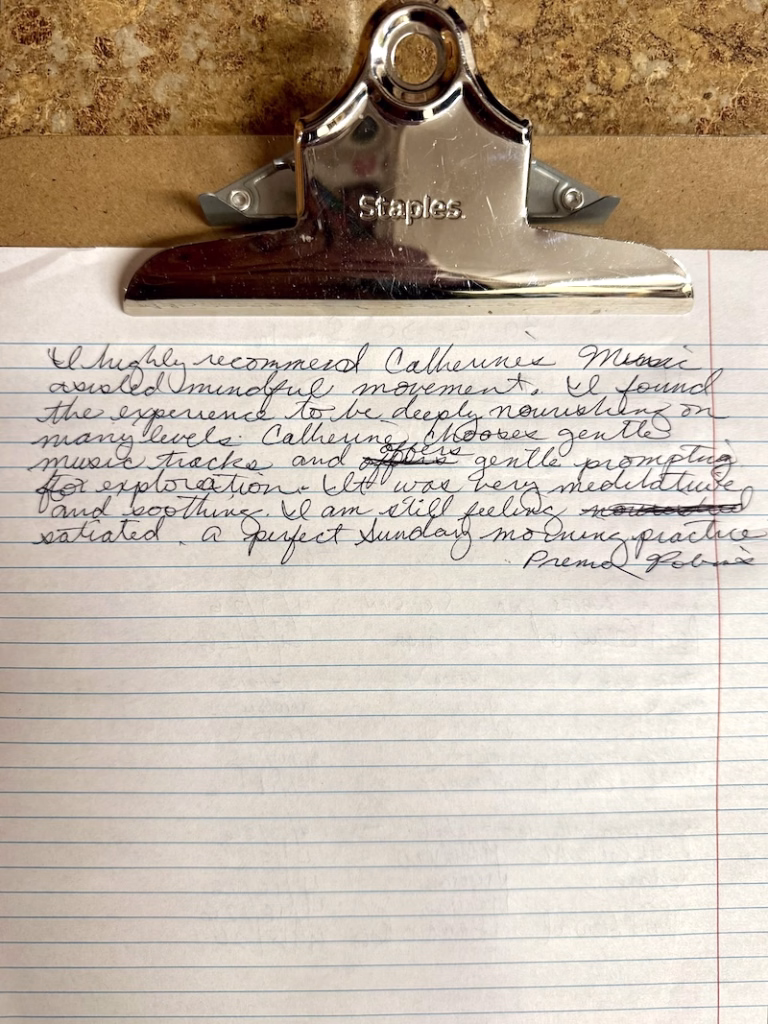 Staples
I highly recommend Catherines Music
assisted mindful movement. I found
the experience to be deeply nourishing on
many levels. Catherine chooses gentle
music tracks and offers gentle prompting
for exploration. It was very meditative
and soothing. I am still feeling
satiated. A perfect Sunday morning practice
Prema